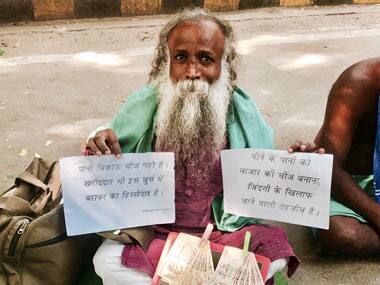 पानी बिकाऊ चीज नहीं है।
खरीददार भी इस जुर्म में
बराबर का हिस्सेदार है।
पीने के पानी को
बाजार की चीज बनाना,
जिंदगी के खिलाफ
जाने वाली तहजीब है।